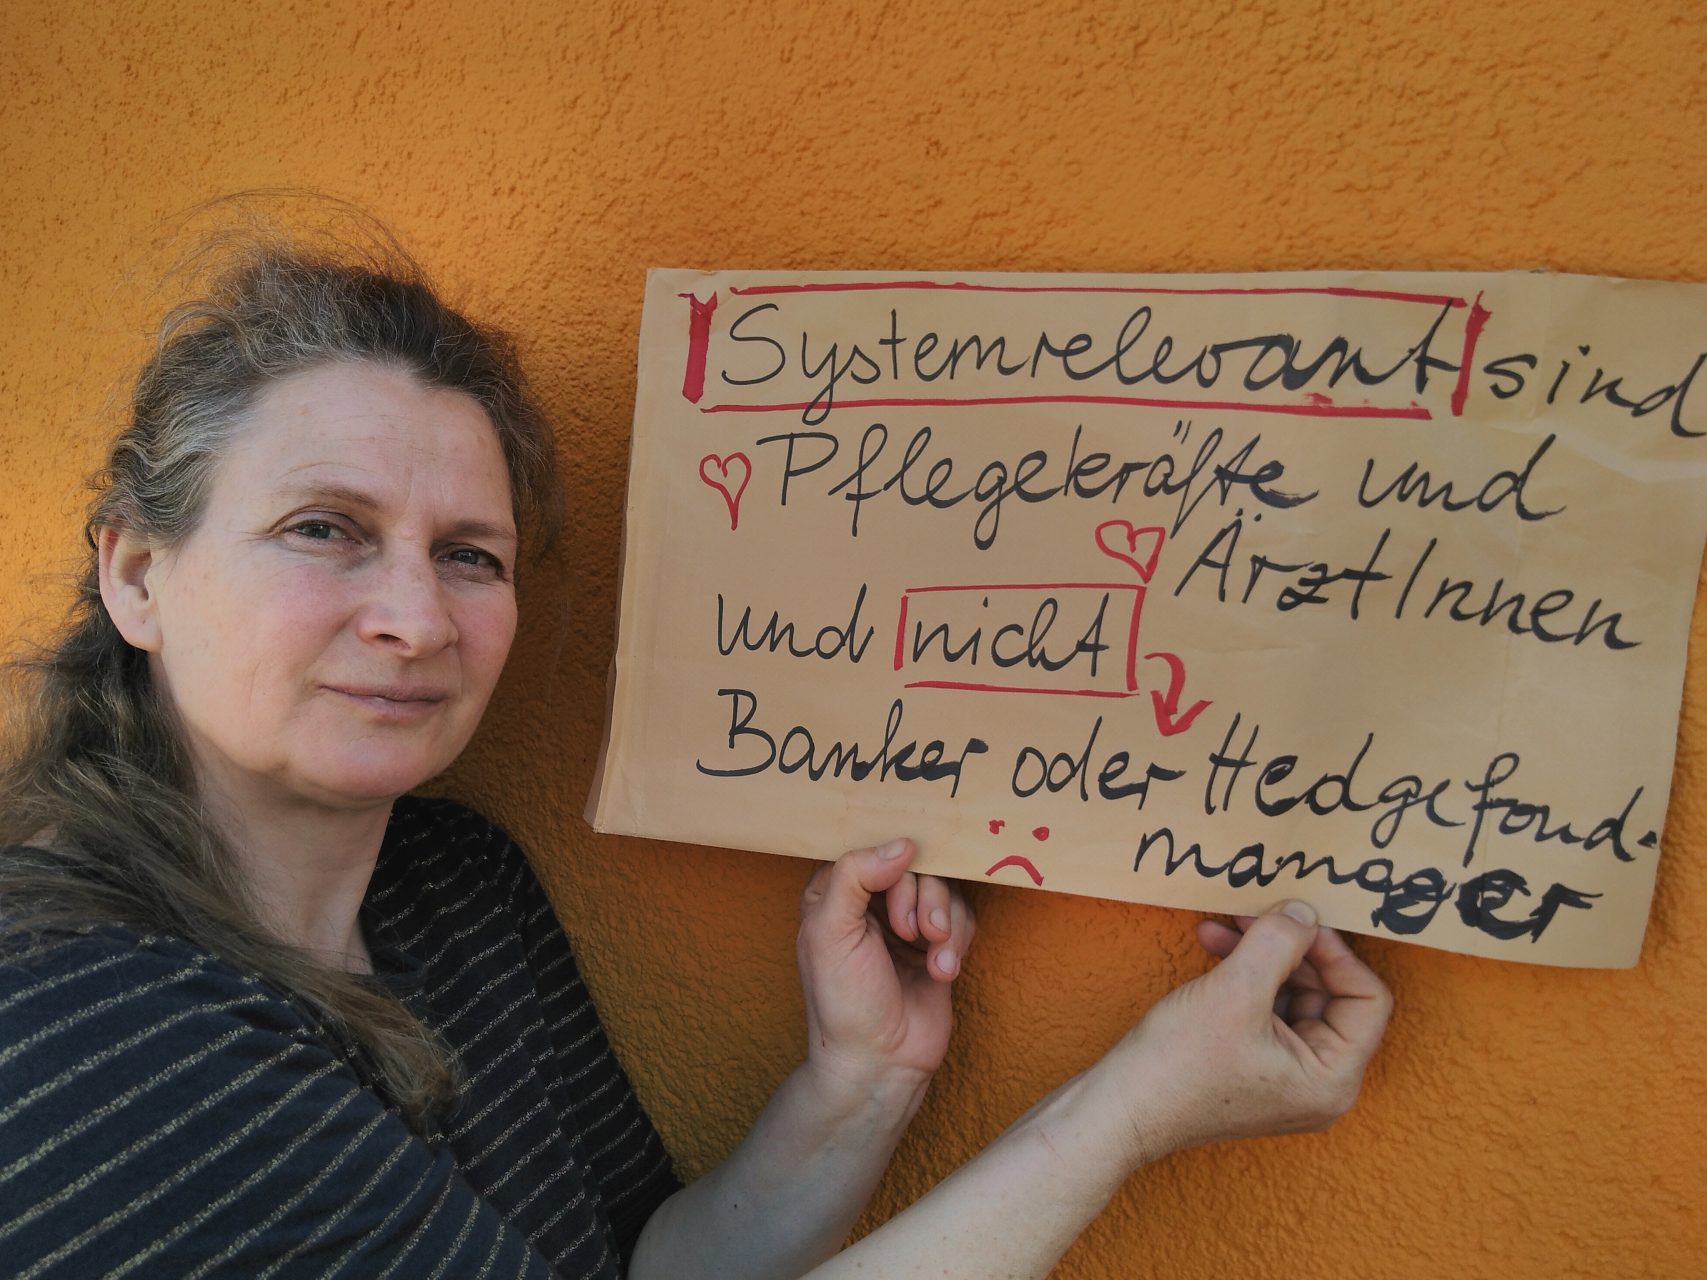 Systemrelevant sind
Pflegekräfte und
ÄrztInnen
und nicht
Banker oder Hedgefond-
manager